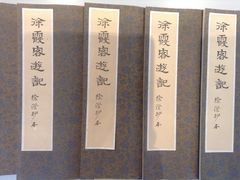 徐霞客遊記
徐澄抄本
徐霞客遊記
徐澄抄本
徐霞客遊記
徐澄抄本
徐霞客遊記
徐澄抄本